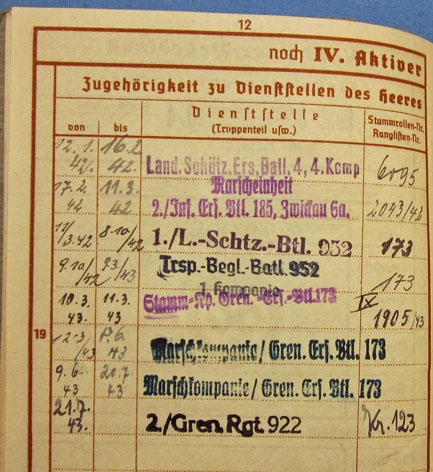 12
noch IV. Aktiver
Zugehörigkeit zu Dienststellen des Heeres
von bis Dienststelle (Truppenteil usw.) Stammrollen-Nr. Ranglisten-Nr.
12.1. 42. 16.2. 42. Land. Schütz. Ers. Batl. 4, 4. Komp 6095
17.2. 42 11.3. 42 Marscheinheit
2./Inf. Ers. Btl. 185, Zwickau Sa. 2043/42
12/3.42 8.10/42 1./L.-Schtz.-Btl. 952 173
9.10/42 9.3/43 Trsp.-Begl.-Batl. 952
1. Kompanie 173
10.3. 43. 11.3. 43 Stamm-Kp. Gren.-Ers.-Btl. 173 IX 1905/43
19
43 43 Marschkompanie/Gren. Ers. Btl. 173
9.6. 43 20.7. 43 Marschkompanie/Gren. Ers. Btl. 173
21.7. 43. 2./Gren. Rgt. 922 Nr. 123